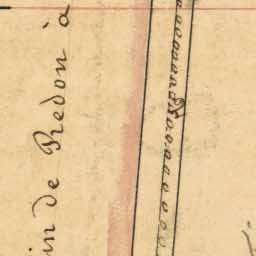 in de Redon à